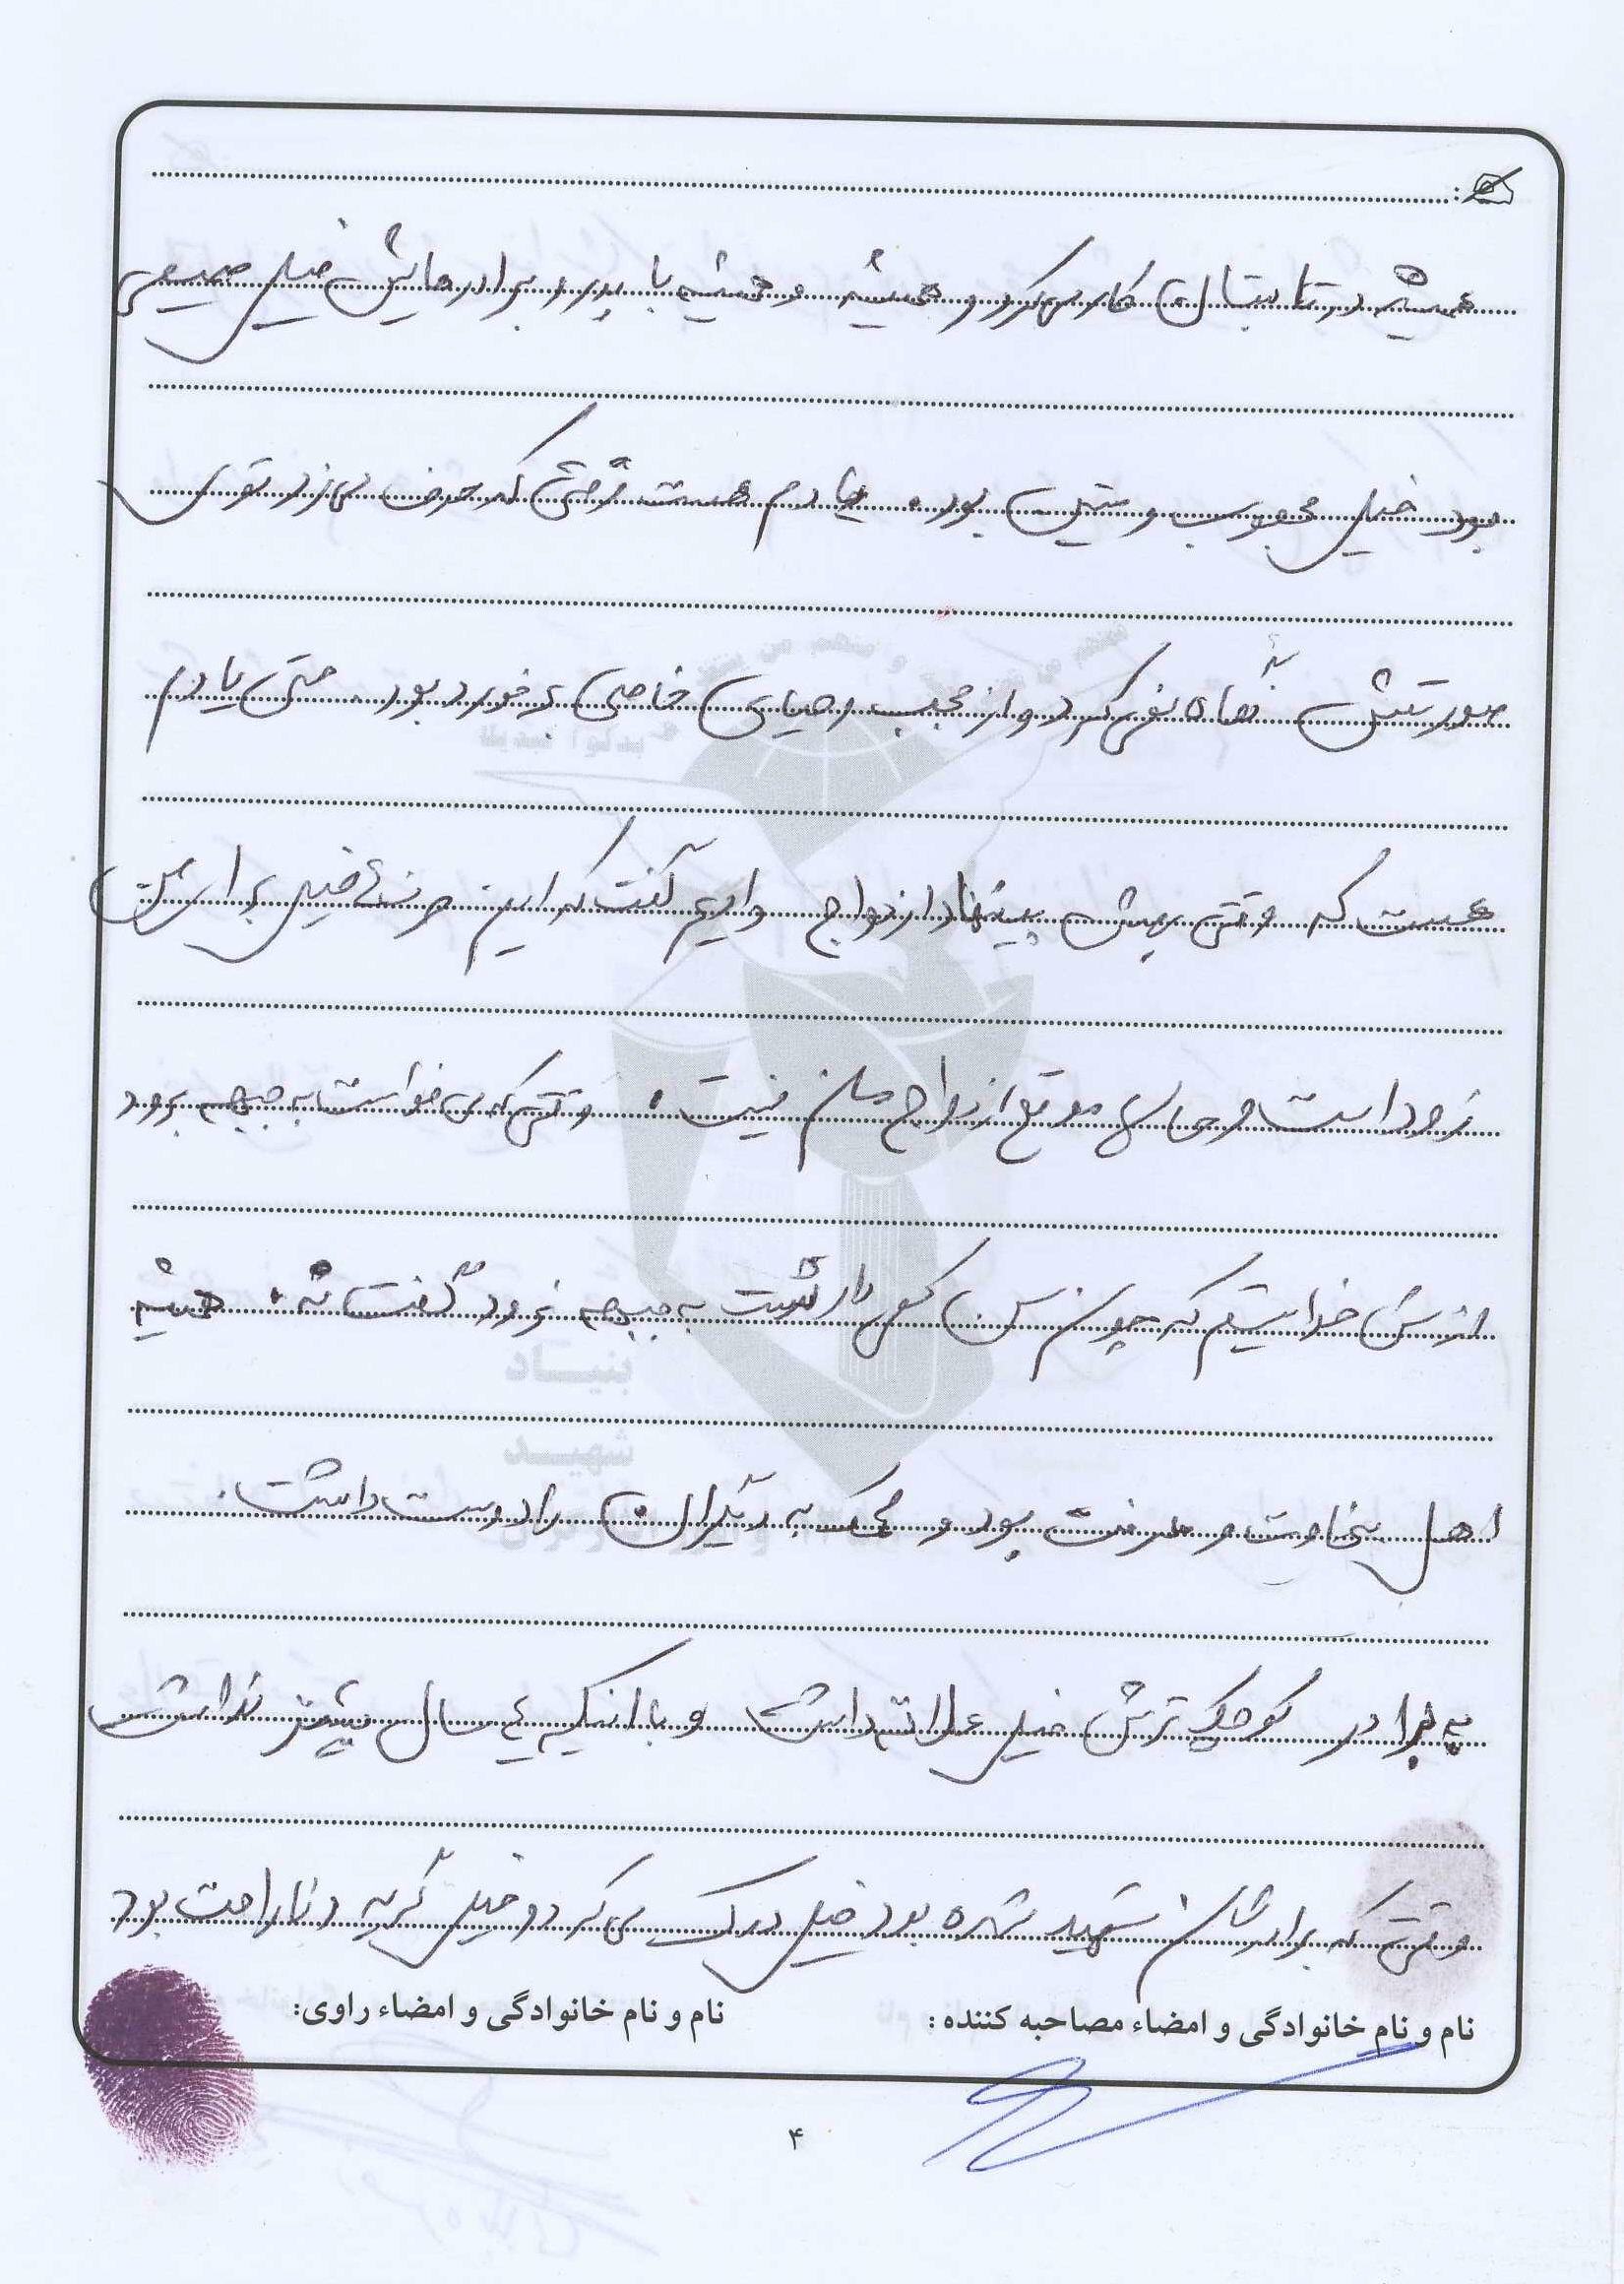 همیشه در تابستان کار می‌کرد و همیشه و همیشه با پدر و برادرهایش خیلی صمیمی
بود خیلی محجوب و متین بود. یادم هست وقتی که حرف می‌زد توی
صورتش نگاه نمی‌کرد و از حجب و حیای خاصی برخورد بود. حتی یادم
هست که وقتی بهش پیشنهاد ازدواج دادیم گفت که این حرف‌ها خیلی برای من
زود است و حالا موقع ازدواج من نیست. وقتی که می‌خواست به جبهه برود
ازش خواستیم که چون سن کمی داشت به جبهه نرود گفت نه. همیشه
اهل سخاوت و معرفت بود و کمک به دیگران را دوست داشت.
به برادر کوچک ترش خیلی علاقه داشت و با اینکه ۴ سال بیشتر نداشت
وقتی که برادرشان شهید شده بود خیلی درک می‌کرد و خیلی گریه و ناراحت بود
نام و نام خانوادگی و امضاء مصاحبه کننده:
نام و نام خانوادگی و امضاء راوی:
۴
بنیاد
شهید